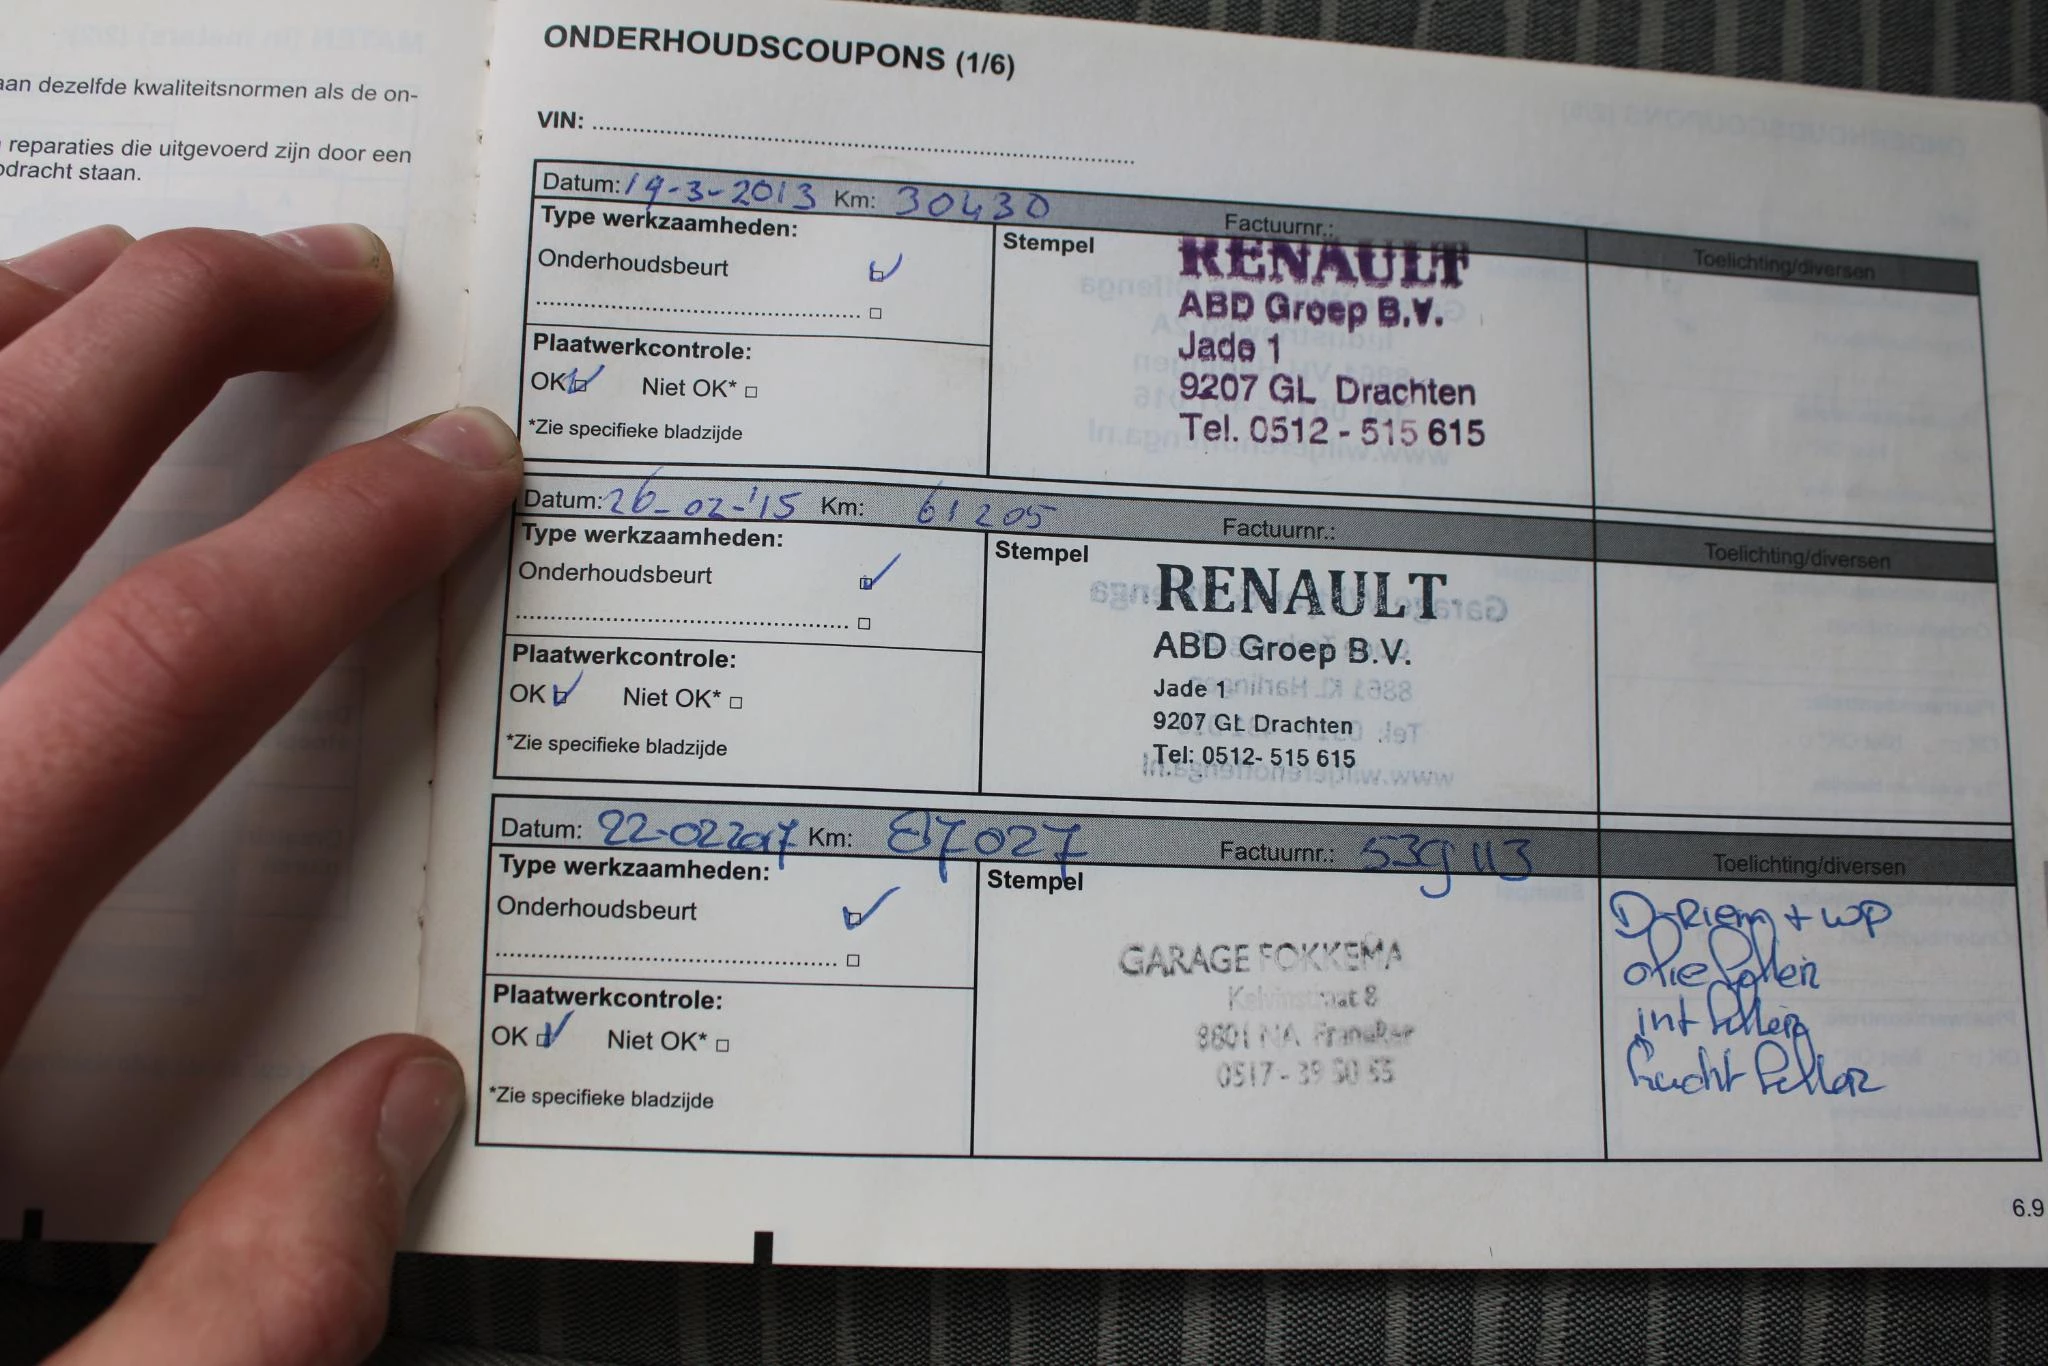 aan dezelfde kwaliteitsnormen als de on-
reparaties die uitgevoerd zijn door een
pdracht staan.
ONDERHOUDSCOUPONS (1/6)
VIN:
Datum: 19-3-2013 Km: 30430 Factuurnr.:
Type werkzaamheden: Stempel Toelichting/diversen
Onderhoudsbeurt
Plaatwerkcontrole:
OK Niet OK*
*Zie specifieke bladzijde
RENAULT
ABD Groep B.V.
Jade 1
9207 GL Drachten
Tel. 0512 - 515 615
Datum: 26-02-'15 Km: 61205 Factuurnr.:
Type werkzaamheden: Stempel Toelichting/diversen
Onderhoudsbeurt
Plaatwerkcontrole:
OK Niet OK*
*Zie specifieke bladzijde
RENAULT
ABD Groep B.V.
Jade 1
9207 GL Drachten
Tel: 0512- 515 615
Datum: 22-02 2017 Km: 87027 Factuurnr.: 539113
Type werkzaamheden: Stempel Toelichting/diversen
Onderhoudsbeurt
Plaatwerkcontrole:
OK Niet OK*
*Zie specifieke bladzijde
GARAGE FOKKEMA
Kelvinstraat 8
8801 NA Franeker
0517 - 39 50 55
D-Riem + WP
olie filter
int filter
lucht filter
6.9